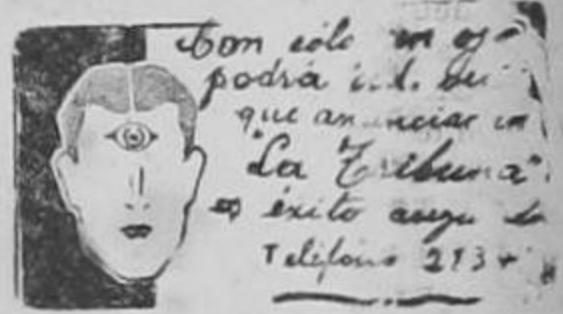 Con sólo un ojo
podrá ud. ver
que anunciar en
"La Tribuna"
es éxito
Teléfono 213